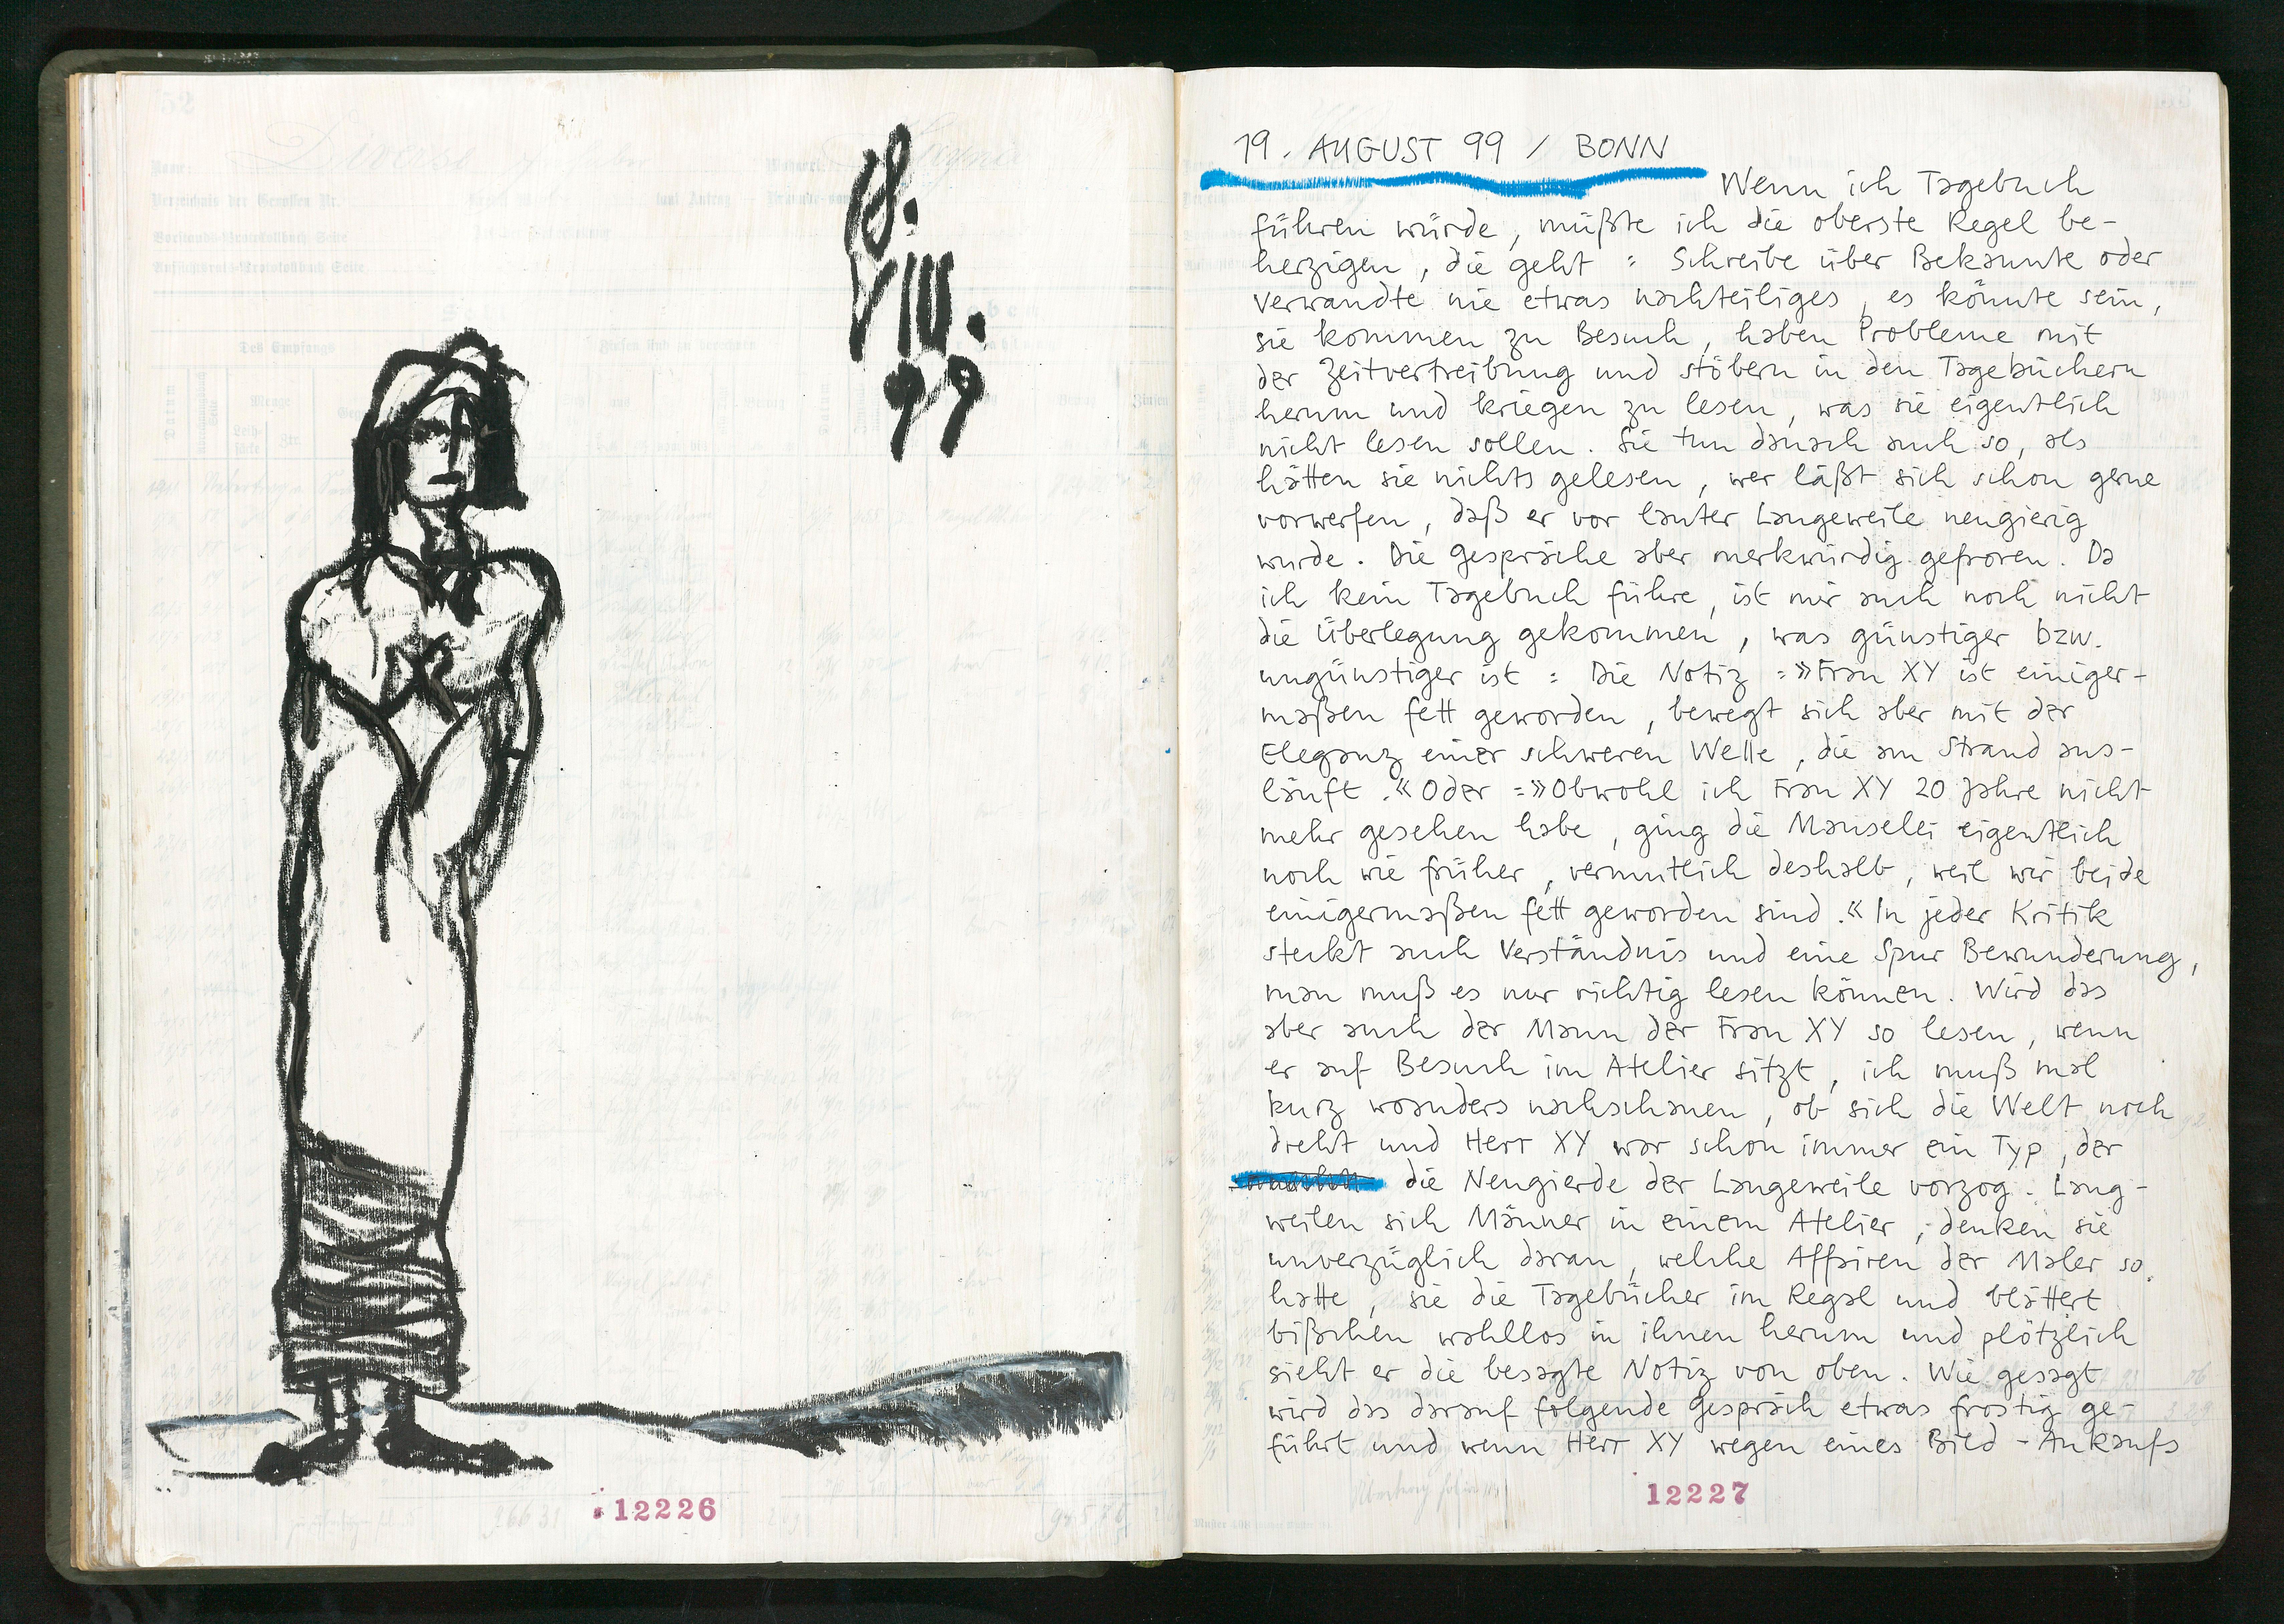 18.
VIII.
99
12226
19. AUGUST 99 / BONN
Wenn ich Tagebuch
führen würde, müßte ich die oberste Regel be-
herzigen, die geht : Schreibe über Bekannte oder
Verwandte nie etwas nachteiliges, es könnte sein,
sie kommen zu Besuch, haben Probleme mit
der Zeitvertreibung und stöbern in den Tagebüchern
herum und kriegen zu lesen, was sie eigentlich
nicht lesen sollen. Sie tun danach auch so, als
hätten sie nichts gelesen, wer läßt sich schon gerne
vorwerfen, daß er vor lauter Langeweile neugierig
wurde. Die Gespräche aber merkwürdig gefroren. Da
ich kein Tagebuch führe, ist mir auch noch nicht
die Überlegung gekommen, was günstiger bzw.
ungünstiger ist : Die Notiz :»Frau XY ist einiger-
maßen fett geworden, bewegt sich aber mit der
Eleganz einer schweren Welle, die am Strand aus-
läuft.« Oder :»Obwohl ich Frau XY 20 Jahre nicht
mehr gesehen habe, ging die Mauselei eigentlich
noch wie früher, vermutlich deshalb, weil wir beide
einigermaßen fett geworden sind.« In jeder Kritik
steckt auch Verständnis und eine Spur Bewunderung,
man muß es nur richtig lesen können. Wird das
aber auch der Mann der Frau XY so lesen, wenn
er auf Besuch im Atelier sitzt, ich muß mal
kurz woanders nachschauen, ob sich die Welt noch
dreht und Herr XY war schon immer ein Typ, der
die Neugierde der Langeweile vorzog. Lang-
weilen sich Männer in einem Atelier, denken sie
unverzüglich daran, welche Affairen der Maler so
hatte, sie die Tagebücher im Regal und blättert
bißchen wahllos in ihnen herum und plötzlich
sieht er die besagte Notiz von oben. Wie gesagt
wird das darauf folgende Gespräch etwas frostig ge-
führt und wenn Herr XY wegen eines Bild-Ankaufs
12227